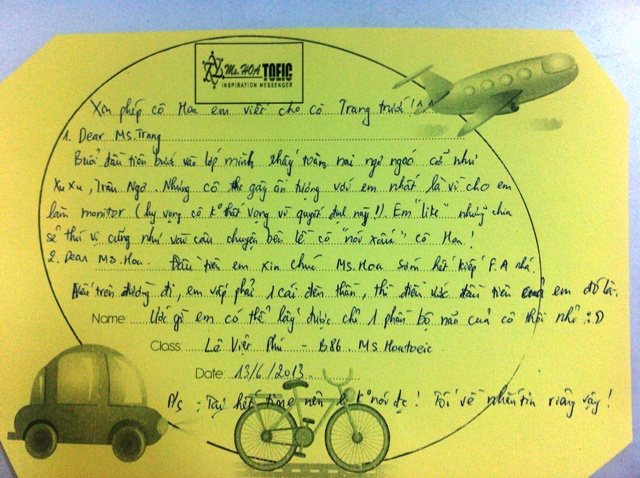 Ms. HOA TOEIC
INSPIRATION MESSENGER
Xin phép cô Hoa em viết cho cô Trang trước! ^^
1. Dear Ms.Trang
Buổi đầu tiên bước vào lớp mình thấy toàn nai ngơ ngác cả như
Xu Xu, Trâu Ngơ. Nhưng cô gây ấn tượng với em nhất là vì cho em
làm monitor (hy vọng cô k° thất vọng vì quyết định này!!). Em "like" những chia
sẻ thú vị cũng như vài câu chuyện bên lề cô "nói xấu" cô Hoa!
2. Dear Ms.Hoa. Đầu tiên em xin chúc Ms.Hoa sớm hết kiếp F.A nhá.
Nếu trên đường đi, em vấp phải 1 cái đèn thần, thì điều ước đầu tiên của em đó là.
Name: Ước gì em có thể lấy được chỉ 1 phần bộ não của cô thôi nhỉ :D
Class: Lê Việt Phú - B86. Ms.Hoatoeic
Date: 13/6/2013
P/s: hết time nên k° nói đc! Tối về nhắn tin riêng vậy!